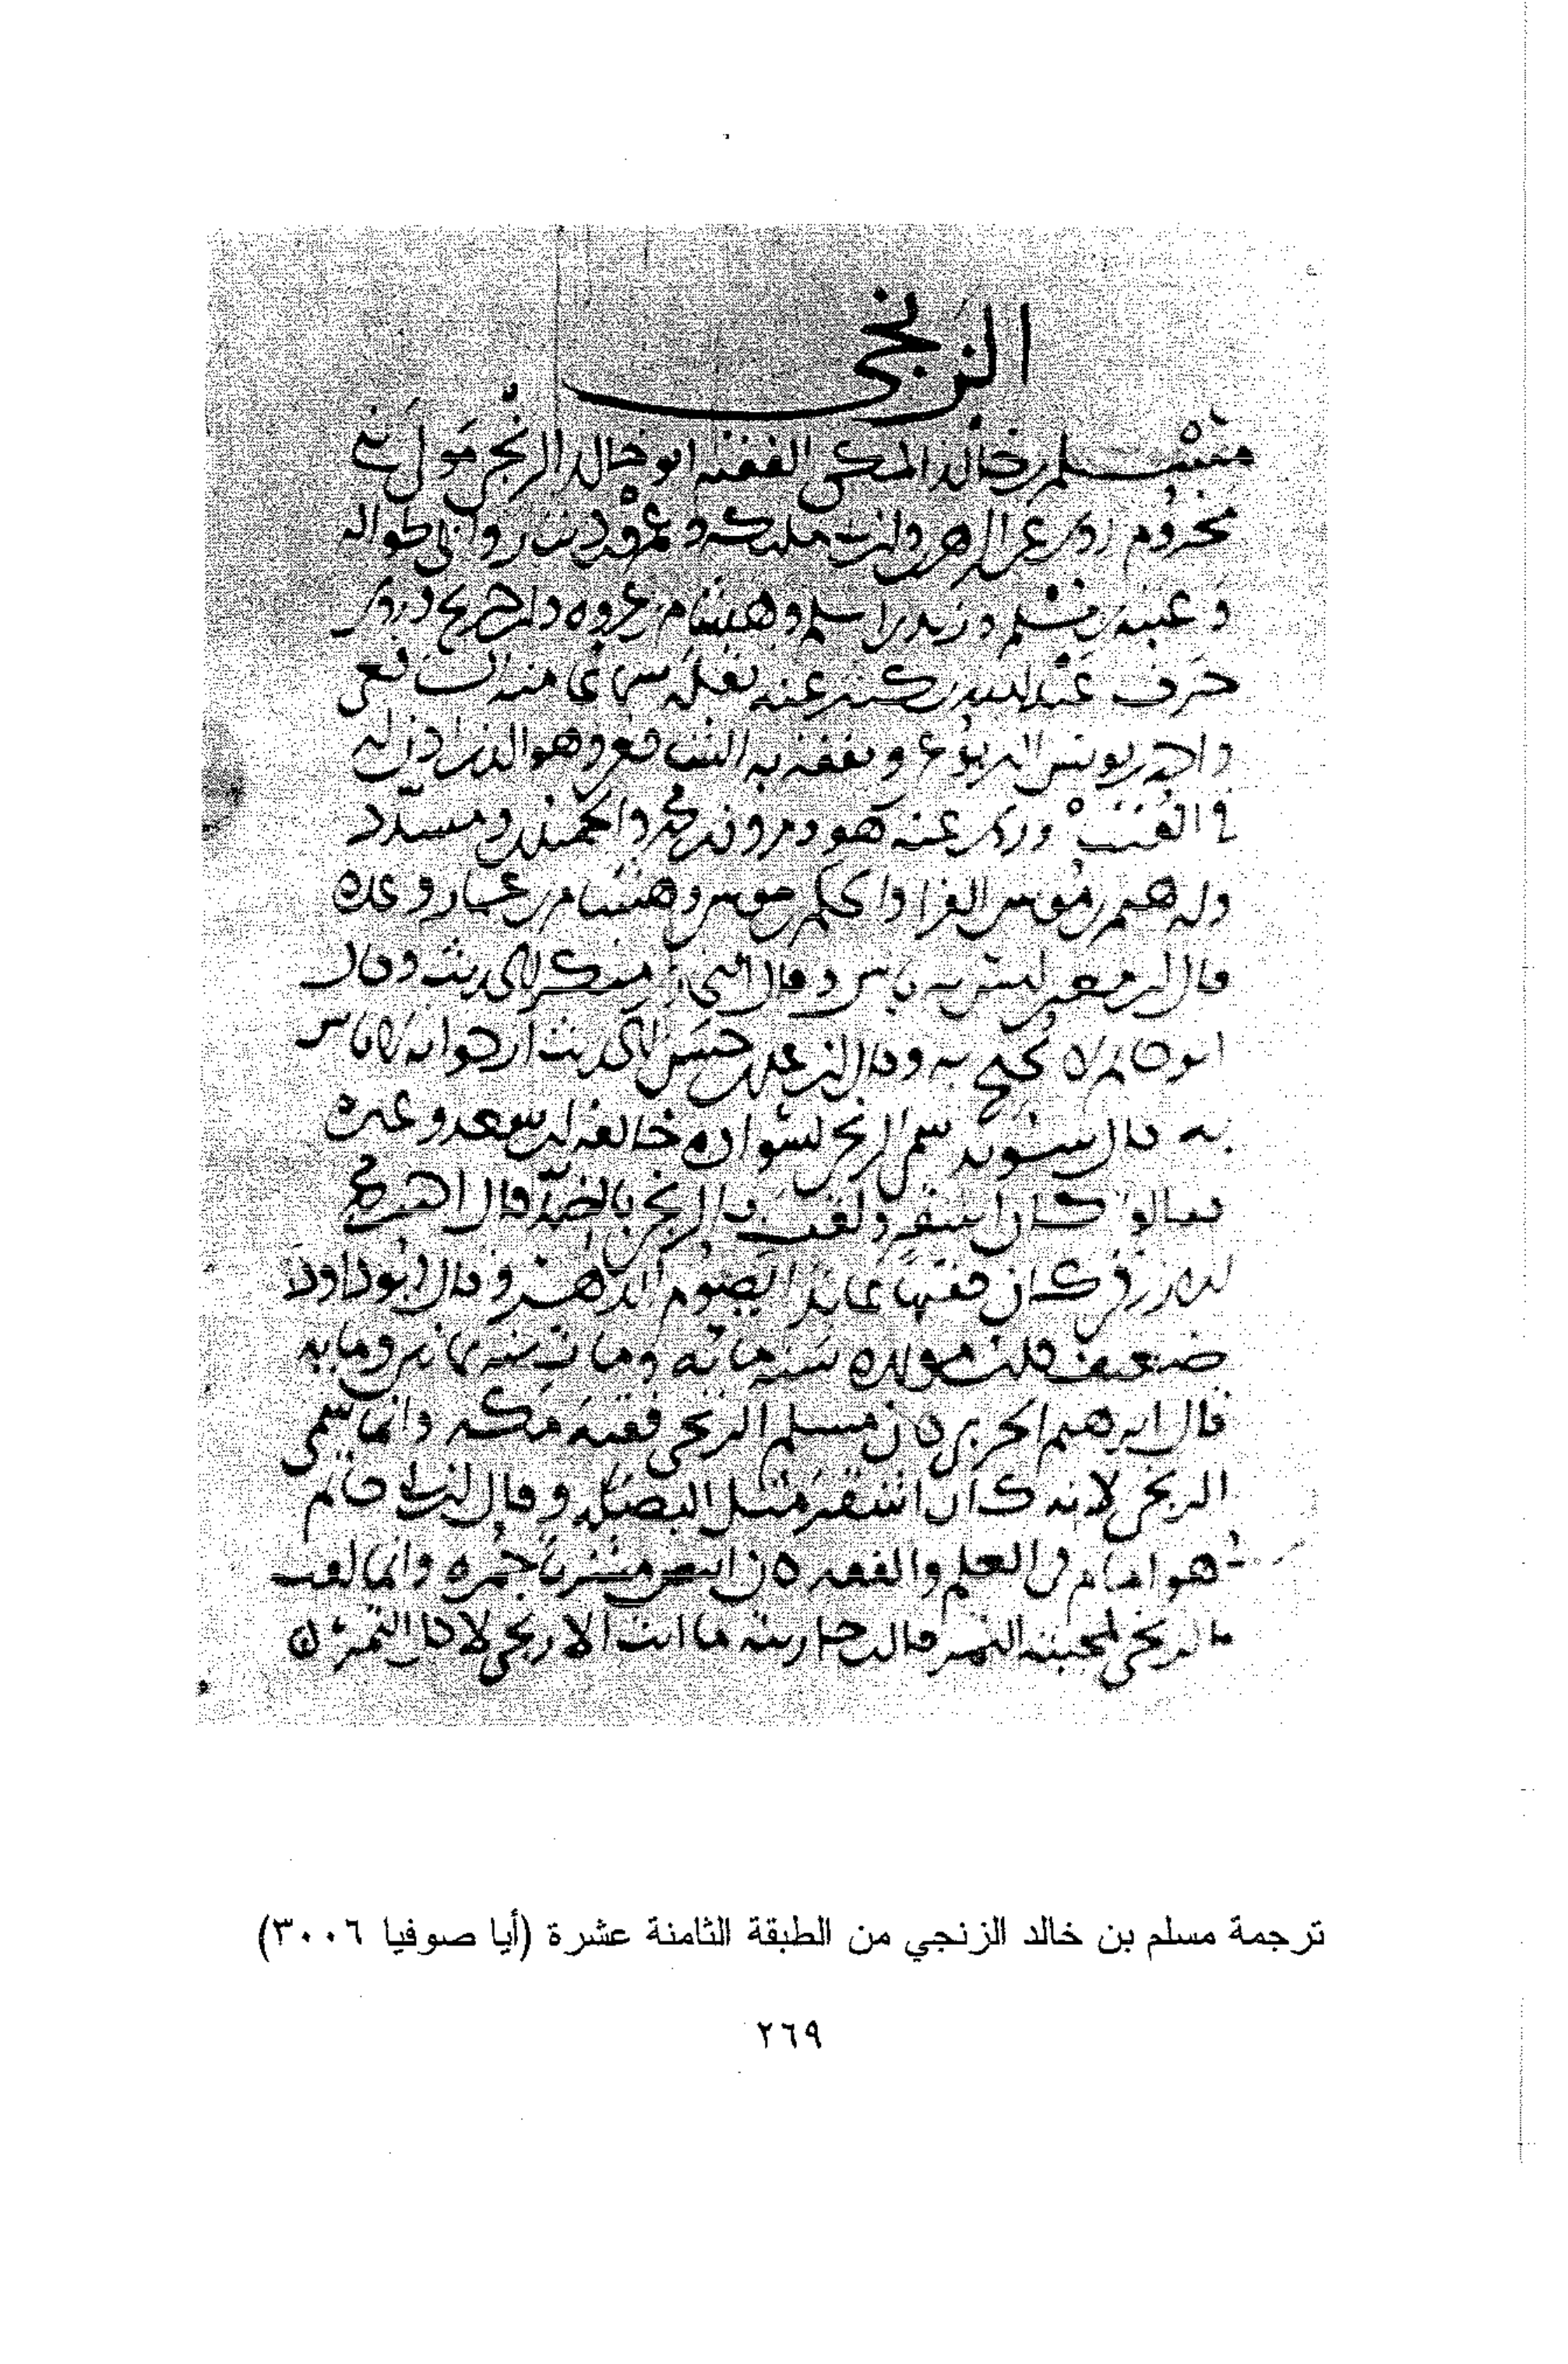 الزنجي
مسلم بن خالد المكي الفقيه ابو خالد الزنجي مولى بني
مخزوم روى عن الزهري وابن ابي مليكه وعمرو بن دينار وابي طواله
وعتبة بن مسلم وزيد بن اسلم وهشام بن عروه وابن جريج وروى
حرف عبد الله بن كثير عنه نقله سماعا منه الشافعي
واحمد بن يونس اليربوعي وتفقه به الشافعي وهو الذي اذن له
في الفتيا وروى عنه هو ومروان بن محمد والحميدي ومسدد
وابرهيم بن موسى الفرا والحكم بن موسى وهشام بن عمار وعده
قال ابن معين ليس به باس وقال البخاري منكر الحديث وقال
ابو حاتم لا يحتج به وقال ابن عدي حسن الحديث ارجوا انه لا باس
به قال سويد سمي الزنجي لسواده خالفه ابن سعد وغيره
فقالوا كان اشقر ولقب بالزنجي بالضد قال احمد بن محمد
الازرقي كان فقيها عابدا يصوم الدهر وقال ابو داود
ضعيف قلت مولده سنة مائه ومات سنة ثمانين ومايه
قال ابرهيم الحربي كان مسلم الزنجي فقيه مكه وانما سمي
الزنجي لانه كان اشقر مثل البصله وقال ابن ابي حاتم
هو امام في العلم والفقه كان ابيض مشربا حمره وانما لقب
بالزنجي لمحبته التمر قالت جاريته ما انت الا زنجي لاكل التمر
ترجمة مسلم بن خالد الزنجي من الطبقة الثامنة عشرة (أيا صوفيا ٣٠٠٦)
٢٦٩